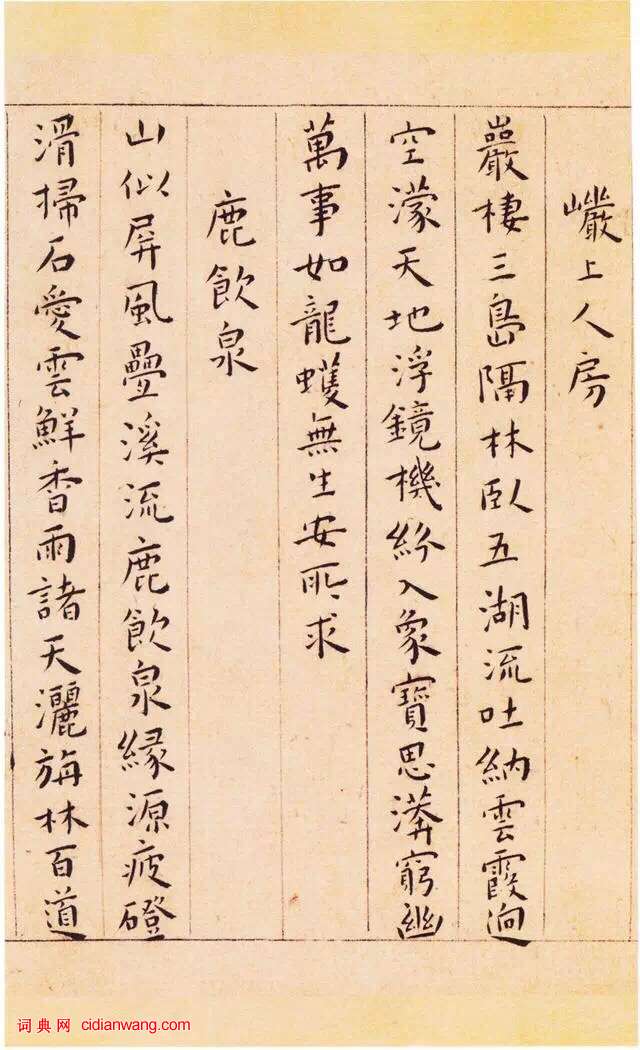 巖上人房
巖棲三島隔林臥五湖流吐納雲霞迥
空濛天地浮鏡機紛入象寶思漭窮幽
萬事如龍蠖無生安所求
鹿飲泉
山似屏風疊溪流鹿飲泉緣源疲磴
滑掃石愛雲鮮香雨諸天灑旃林百道
词典网 cidianwang.com